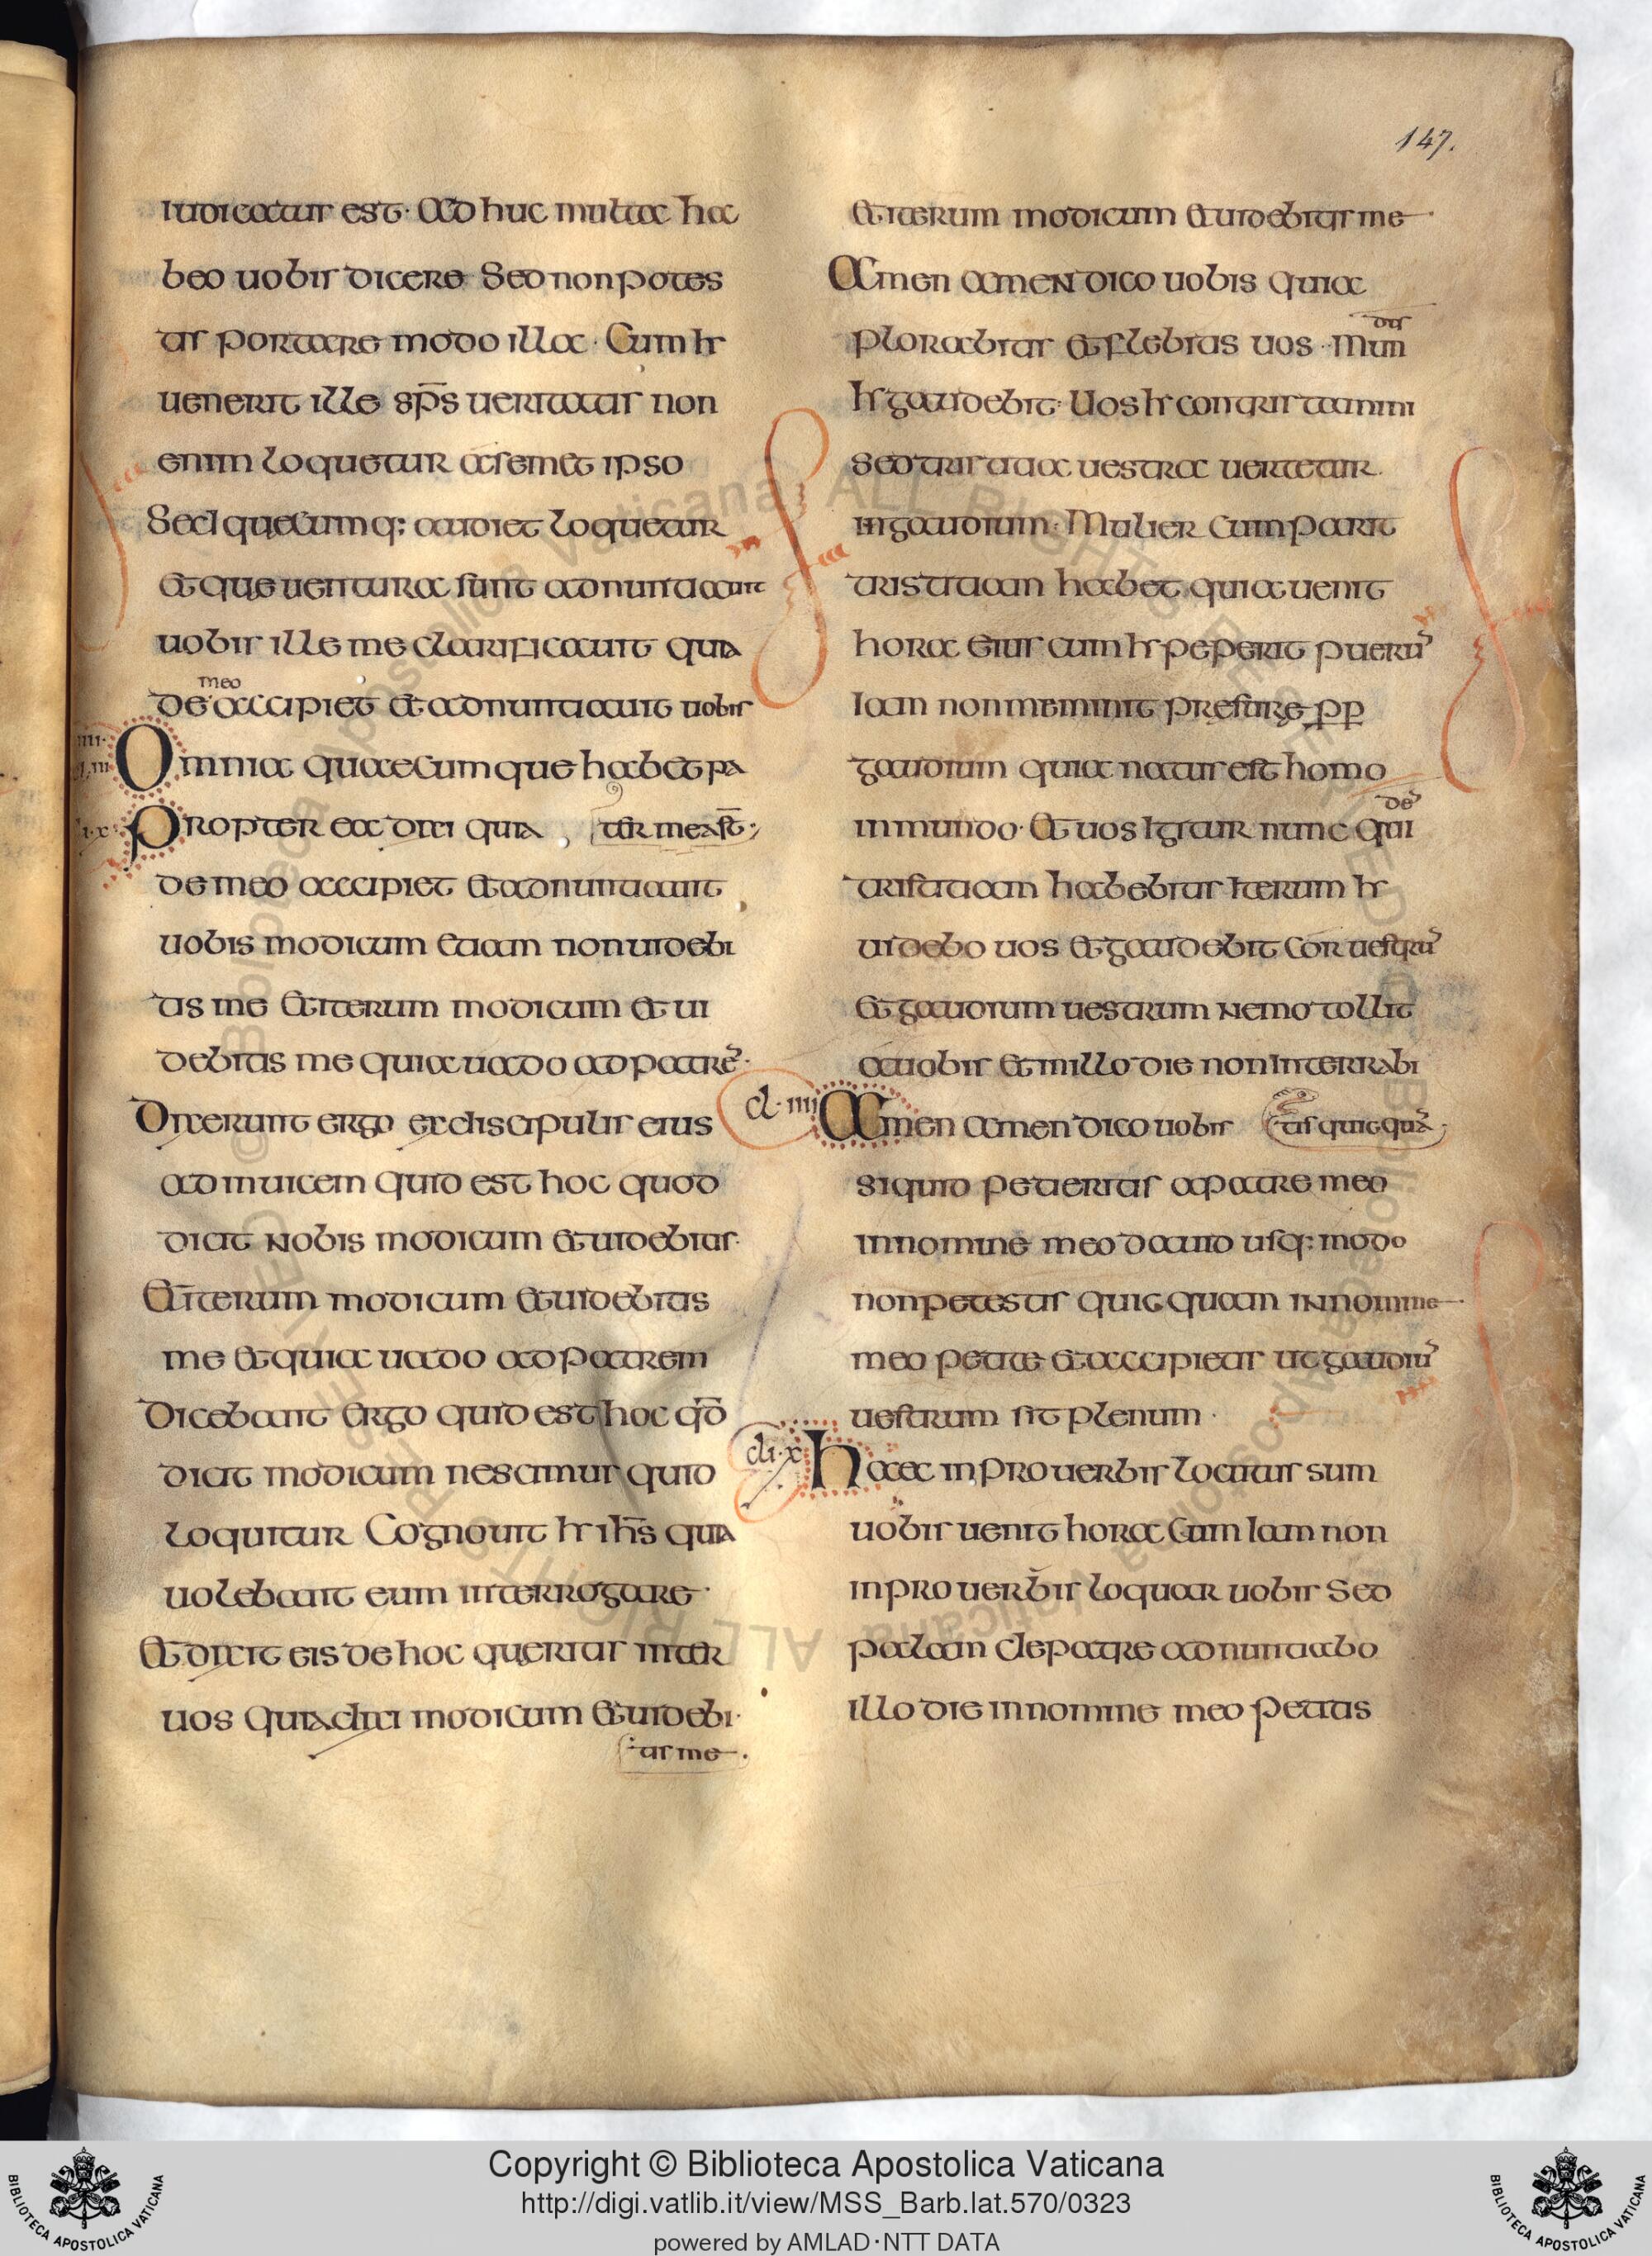 147.
iudicatus est· Ad huc multa ha
beo uobis dicere Sed non potes
tis portare modo illa· Cum hr
uenerit ille sp̄s ueritatis non
enim loquetur a semet ipso
Sed quecumq; audiet loquetur
et que uentura sunt adnuntiauit
uobis ille me clarificauit quia
meo
de accipiet et adnuntiauit uobis
Omnia quaecumque habet pa
Propter ea dixi quia ter mea st̄;
de meo accipiet et adnuntiauit
uobis modicum etiam non uidebi
tis me et iterum modicum et ui
debitis me quia uado ad patrē·
Dixerunt ergo ex discipulis eius
ad inuicem quid est hoc quod
dicit nobis modicum et uidebitis·
Et iterum modicum et uidebitis
me et quia uado ad patrem
Dicebant ergo quid est hoc qd̄
dicit modicum nescimus quid
loquitur Cognouit hr ih̄s quia
uolebant eum interrogare·
Et dixit eis de hoc queritis inter
uos quia dixi modicum et uidebi·
tis me·
et iterum modicum et uidebitis me·
Amen amen dico uobis quia
dus
plorabitis et flebitis uos· Mun
hr gaudebit· Uos hr contristamini
sed tristitia uestra uertetur
in gaudium· Mulier cum parit
tristitiam habet quia uenit
hora eius cum hr peperit puerū
Iam non meminit presure pp
gaudium quia natus est homo
de
in mundo· Et uos Igitur nunc qui
tristitiam habebitis Iterum hr
uidebo uos et gaudebit cor uestrū
et gaudium uestrum nemo tollit
a uobis et in illo die non Interrabi
cl·iiii Amen amen dico uobis tis quicquā·
si quid petieritis a patre meo
in nomine meo dauid usq; modo
non petestis quicquam in nomine
meo petite et accipietis ut gaudiū
uestrum sit plenum·
cli·x Haec in prouerbiis locutus sum
uobis uenit hora cum Iam non
in prouerbiis loquar uobis Sed
palam de patre adnuntiabo
illo die in nomine meo petitis
Copyright © Biblioteca Apostolica Vaticana
http://digi.vatlib.it/view/MSS_Barb.lat.570/0323
powered by AMLAD·NTT DATA
BIBLIOTECA APOSTOLICA VATICANA
BIBLIOTECA APOSTOLICA VATICANA